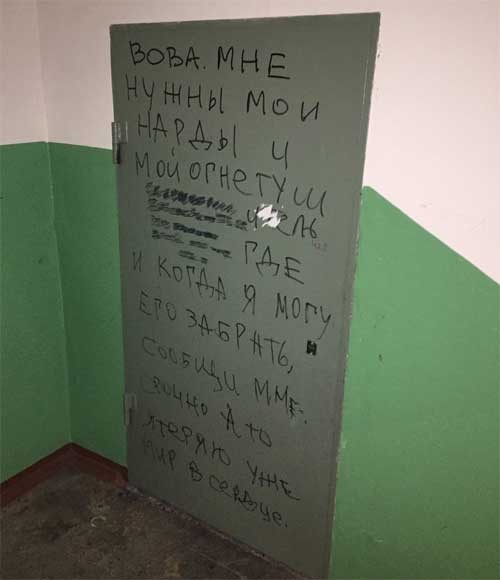 ВОВА. МНЕ
НУЖНЫ МОИ
НАРДЫ И
МОЙ ОГНЕТУШ
ИТЕЛЬ
ГДЕ
И КОГДА Я МОГУ
ЕГО ЗАБРАТЬ,
СООБЩИ МНЕ.
СРОЧНО А ТО
ПТЕРЯЮ УЖЕ
МИР В СЕРДЦЕ.